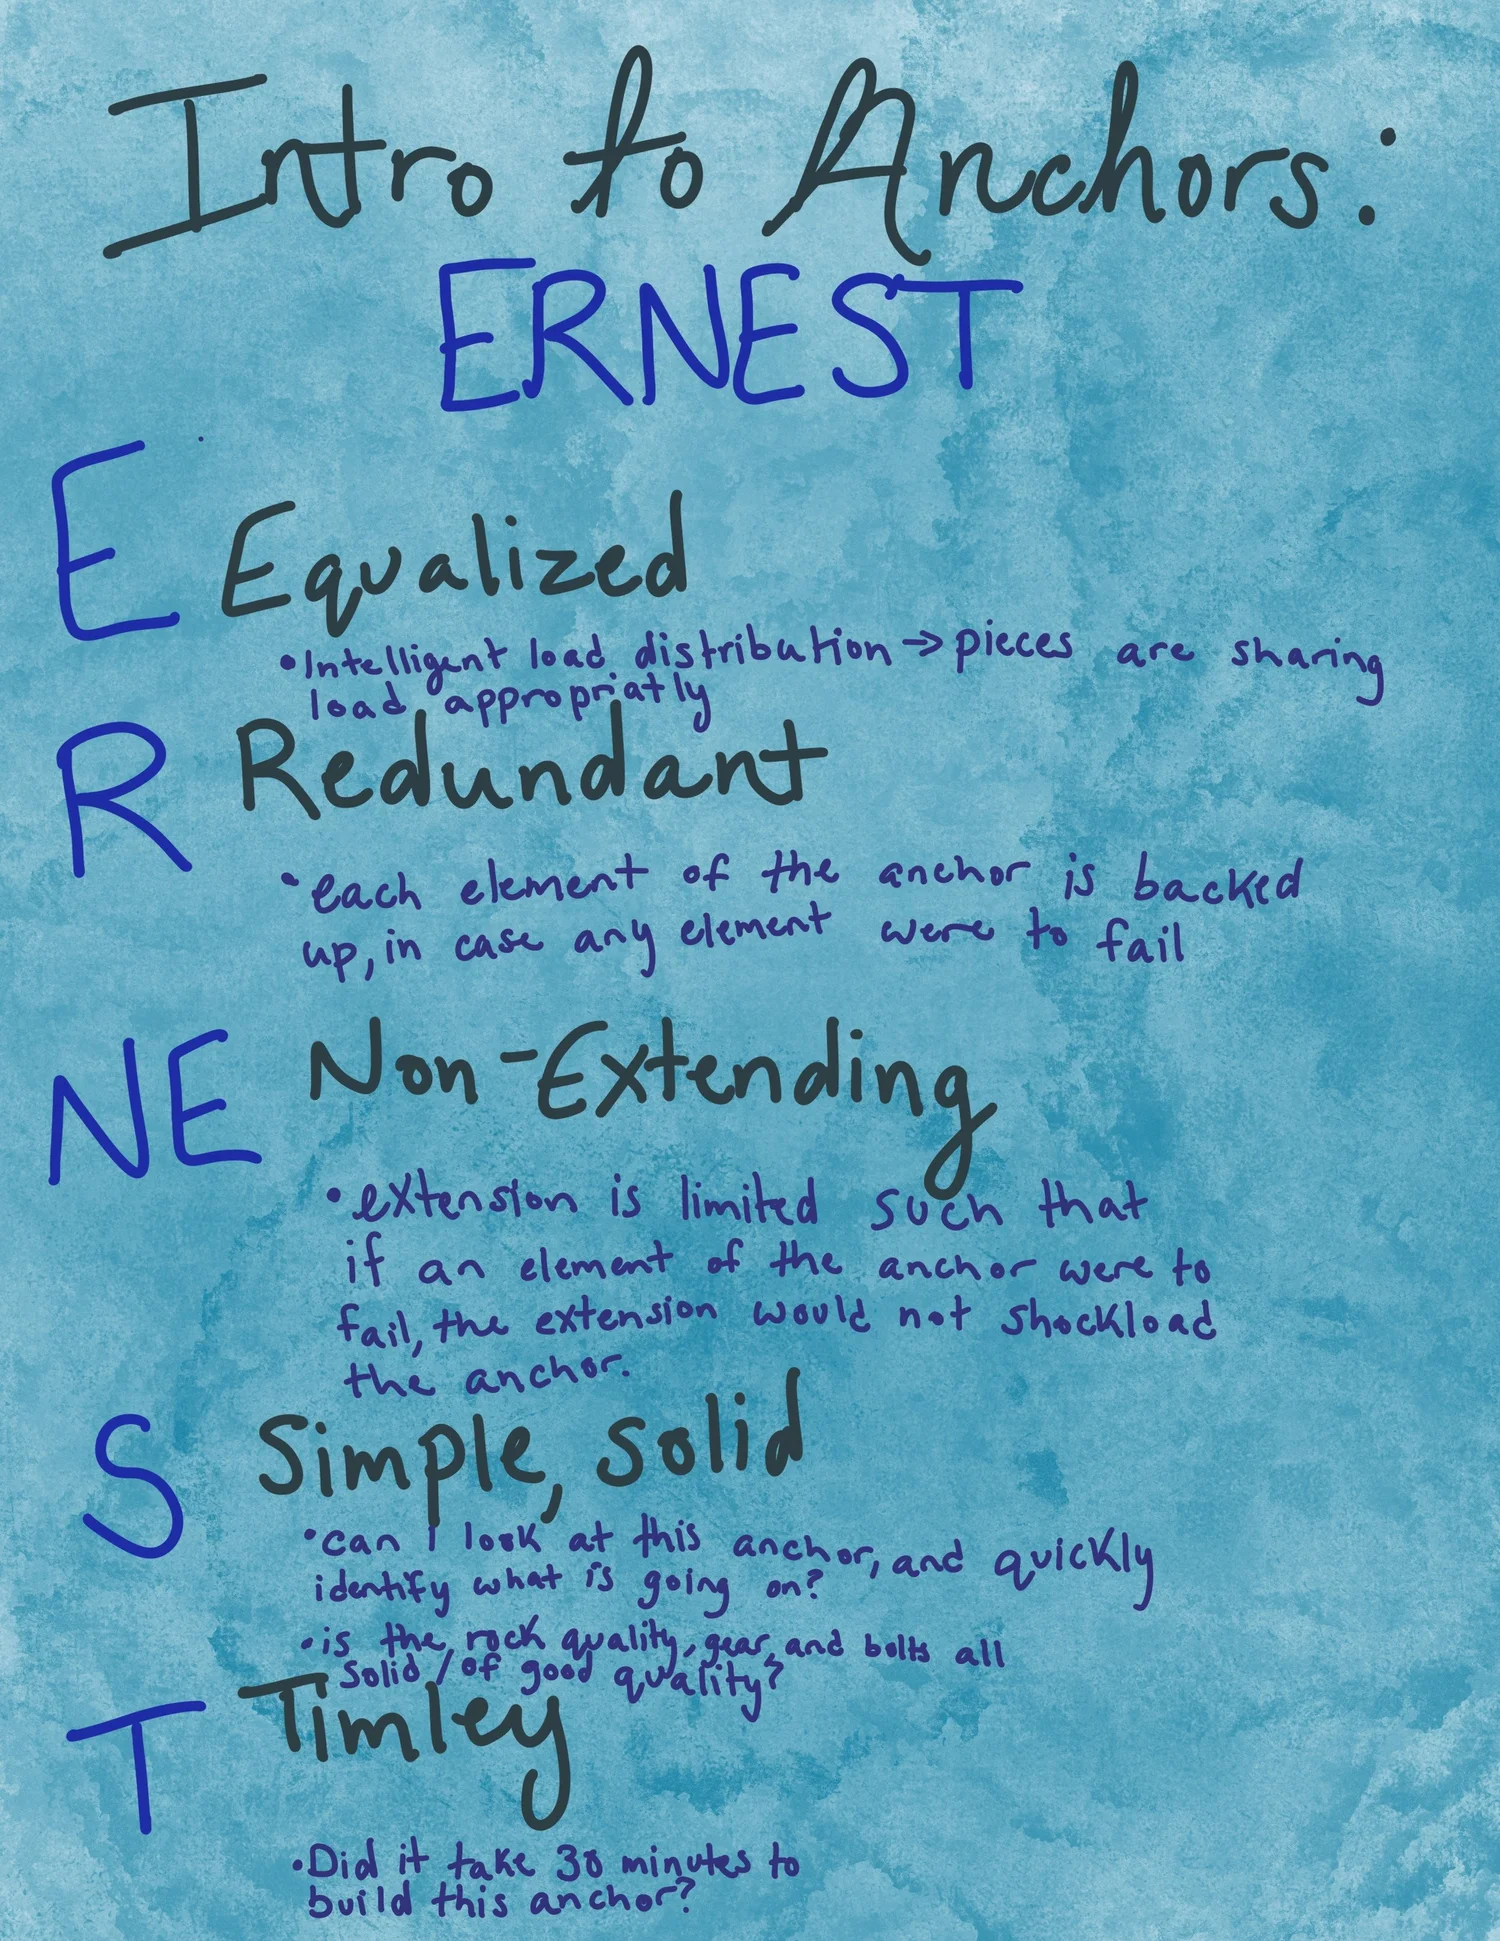 Intro to Anchors:
ERNEST
E Equalized
• Intelligent load distribution → pieces are sharing
load appropriatly
R Redundant
• each element of the anchor is backed
up, in case any element were to fail
NE Non-Extending
• extension is limited such that
if an element of the anchor were to
fail, the extension would not shockload
the anchor.
S Simple, solid
• can I look at this anchor, and quickly
identify what is going on?
• is the rock quality, gear, and bolts all
solid / of good quality?
T Timley
• Did it take 30 minutes to
build this anchor?